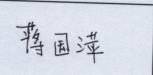 蒋国萍